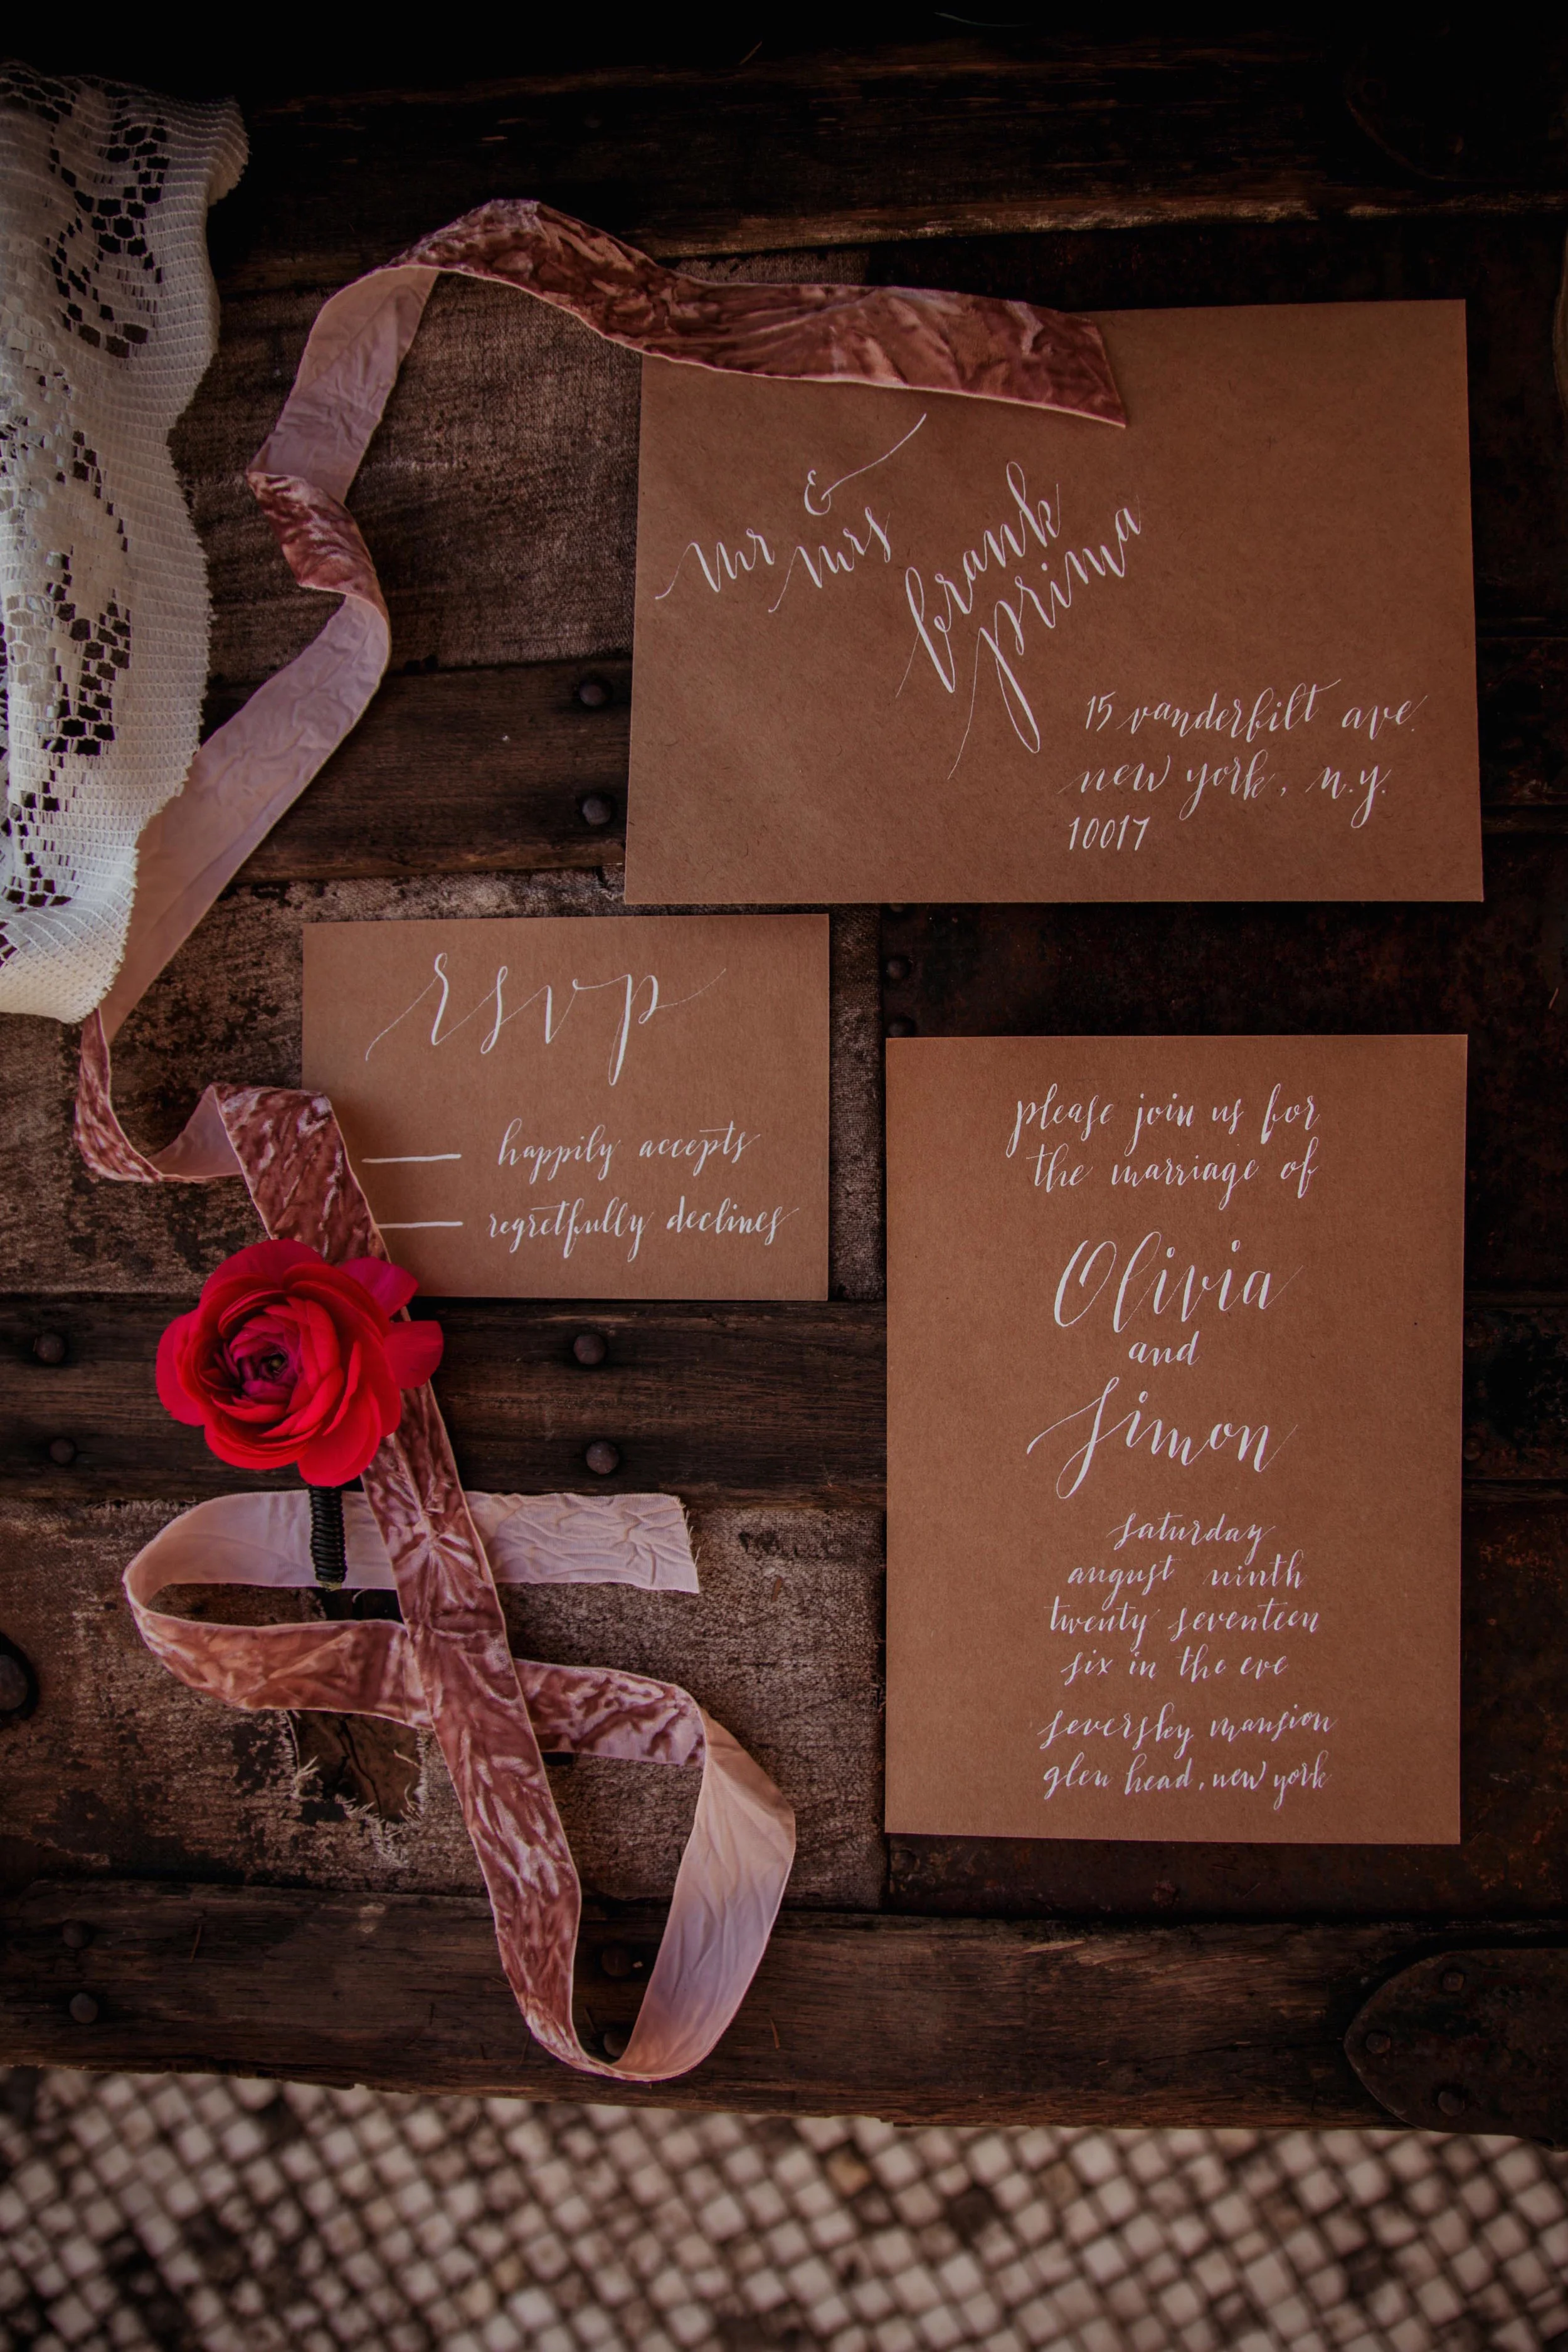 mr & mrs
frank
prima
15 vanderbilt ave.
new york, n.y.
10017
rsvp
happily accepts
regretfully declines
please join us for
the marriage of
Olivia
and
Simon
saturday
august ninth
twenty seventeen
six in the eve
seversky mansion
glen head, new york